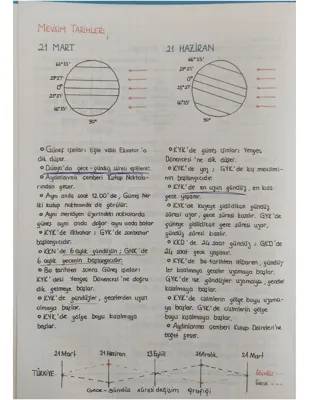 MEVSİM TARİHLERİ
21 MART
66°33'
23°27'
0°
23°27'
66°33'
90°
Güneş ışınları öğle vakti Ekvator'a
dik düşer.
Dünya'da gece-gündüz süresi eşitlenir.
Aydınlanma çemberi Kutup Noktala-
rından geçer.
Aynı anda saat 12.00'de, Güneş her
iki kutup noktasında da görülür.
Aynı meridyen üzerindeki noktalarda
güneş aynı anda doğar aynı anda batar
KYK'de ilkbahar; GYK'de sonbahar
başlangıcıdır.
KKN'de 6 aylık gündüzün; GKN'de
6 aylık gecenin başlangıcıdır.
Bu tarihten sonra Güneş ışınları
KYK'deki Yengeç Dönencesi'ne doğru
dik gelmeye başlar.
KYK'de gündüzler, gecelerden uzun
olmaya başlar.
KYK'de gölge boyu kısalmaya
başlar.
21 HAZİRAN
66°33'
23°27'
0°
23°27'
66°33'
90°
KYK'de güneş ışınları Yengeç
Dönencesi'ne dik düşer.
KYK'de yaz; GYK'de kış mevsimi-
nin başlangıcıdır.
KYK'de en uzun gündüz, en kısa
gece yaşanır.
KYK'de kuzeye gidildikçe gündüz
süresi uzar, gece süresi kısalır. GYK'de
güneye gidildikçe gece süresi uzar,
gündüz süresi kısalır.
KKD'de 24 saat gündüz; GKD'de
24 saat gece yaşanır.
KYK'de bu tarihten itibaren, gündüz
ler kısalmaya geceler uzamaya başlar.
GYK'de ise gündüzler uzamaya, geceler
kısalmaya başlar.
KYK'de cisimlerin gölge boyu uzama-
ya başlar. GYK'de cisimlerin gölge
boyu kısalmaya başlar.
Aydınlanma çemberi Kutup Daireleri'ne
teğet geçer.
21 Mart 21 Haziran 23 Eylül 21 Aralık 21 Mart
TÜRKİYE
Gündüz
Gece
Gece - Gündüz süresi değişim grafiği